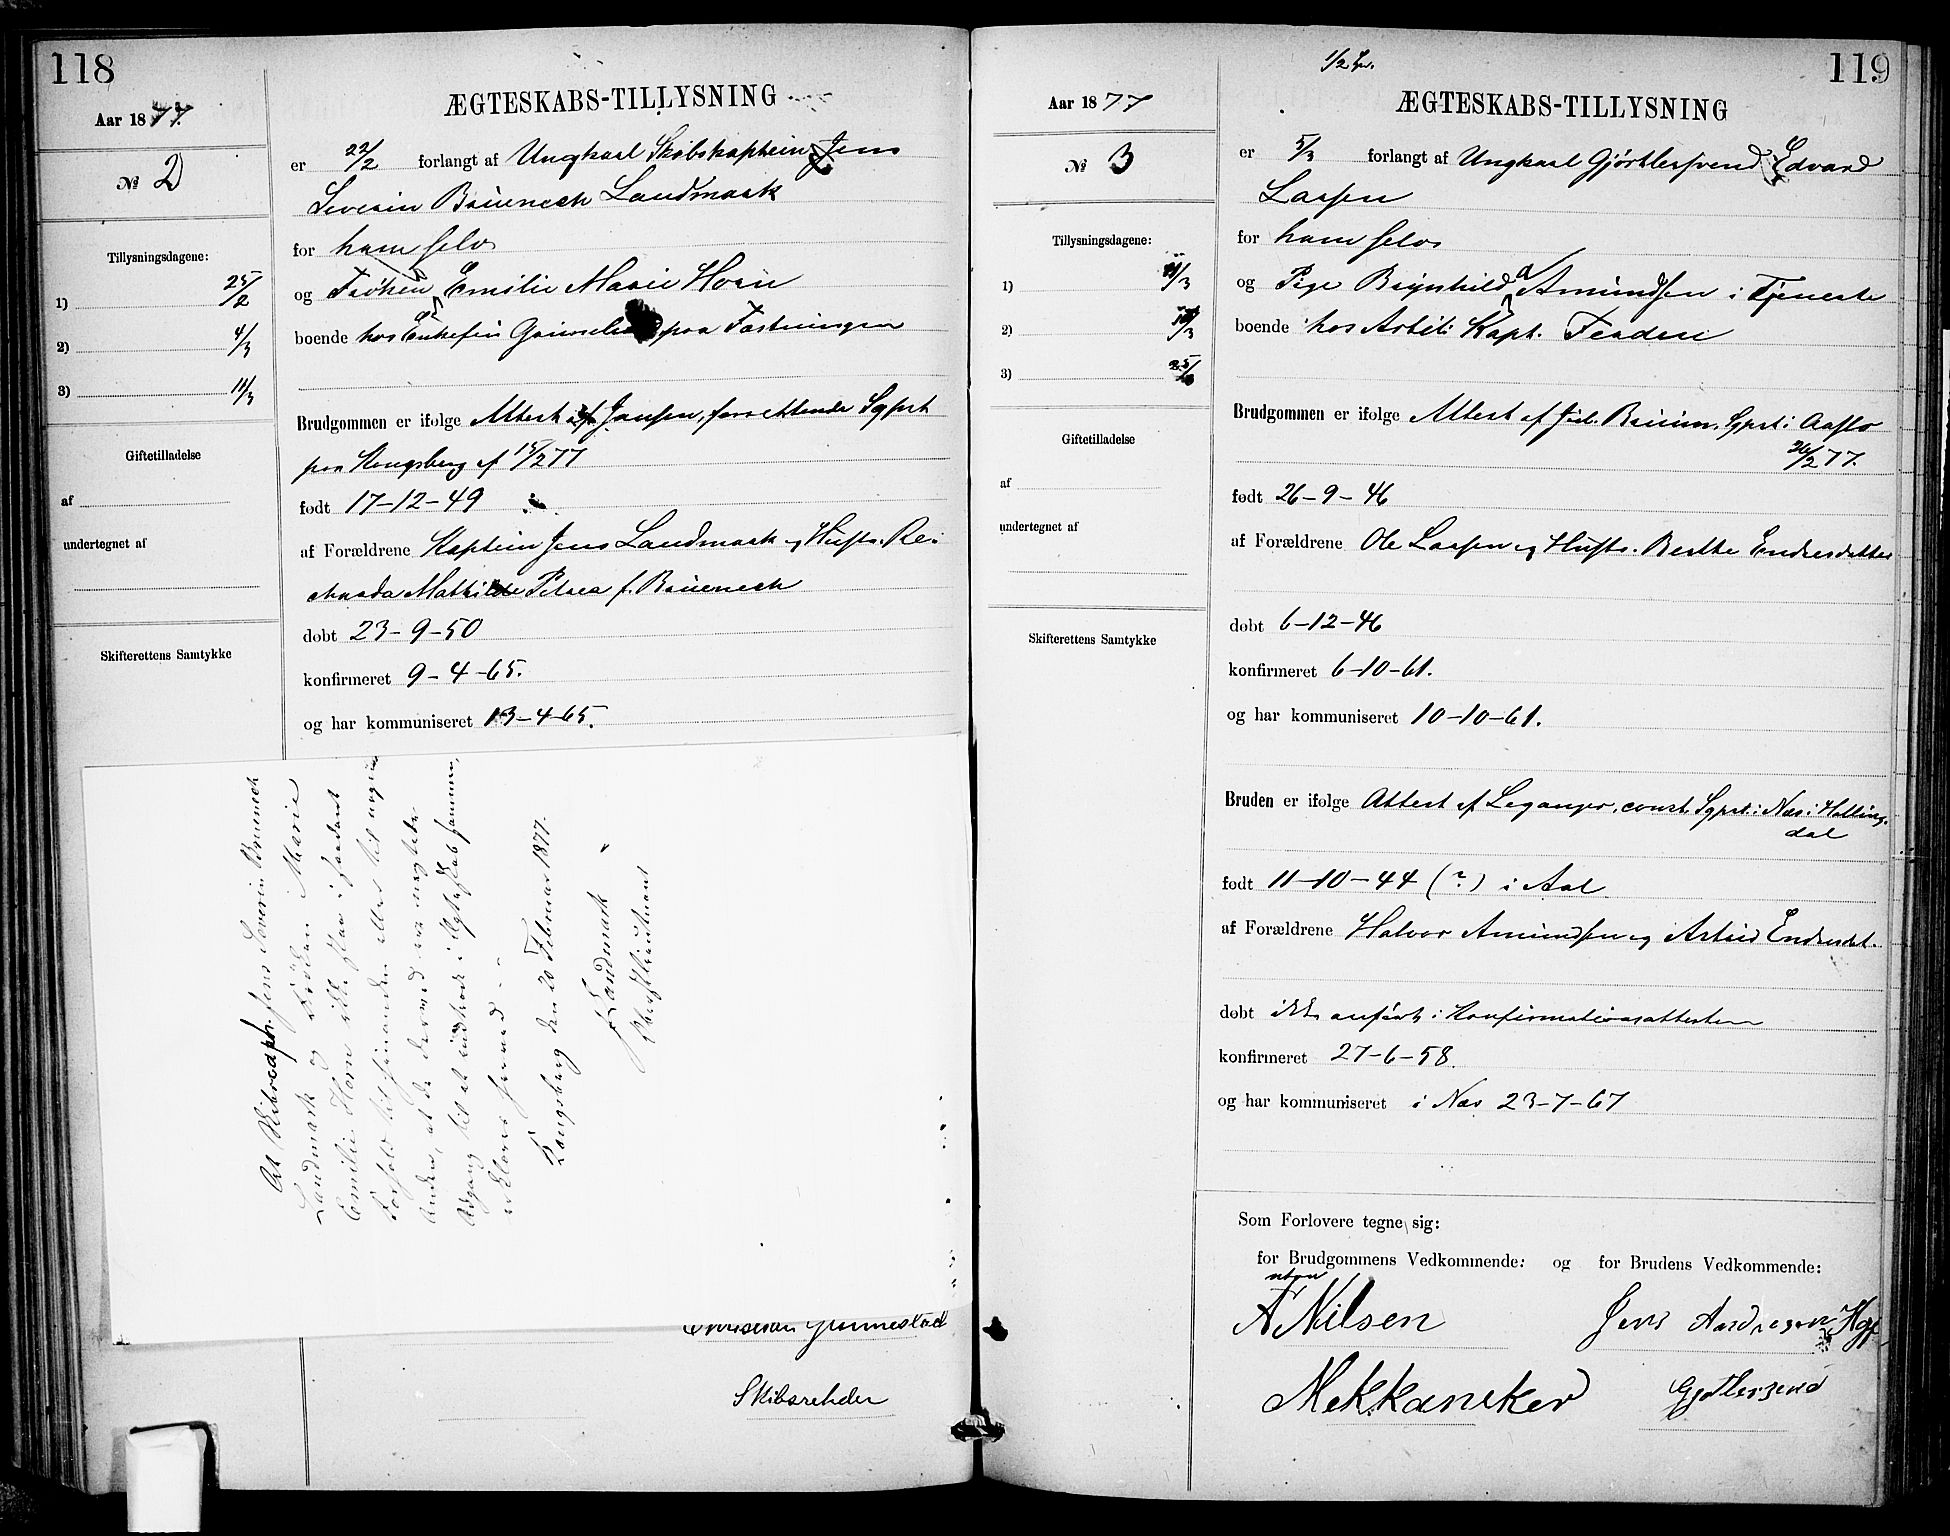 118
Aar 1877.
№ 2
Tillysningsdagene:
1) 25/2
2) 4/3
3) 11/3
Giftetilladelse
af
undertegnet af
Skifterettens Samtykke
ÆGTESKABS-TILLYSNING
er 22/2 forlangt af Ungkarl Skibskaptein Jens
Severin Bruenech Landmark
for ham selv
og Frøken Emilie Marie Horn
boende hos Enkefru paa Fæstningen
Brudgommen er ifølge Attest af Jansen, forrettende Sgprst
paa Kongsberg af 15/2 77
født 17-12-49
af Forældrene Kaptein Jens Landmark og Hustr. Ri-
charda Mathilde Petrea f. Bruenech
døbt 23-9-50
konfirmeret 9-4-65.
og har kommuniseret 13-4-65.
At Skibscaptn. Jens Severin Bruenech
Landmark og Frøken Marie
Emilie Horn ikke staa i saadant
Forhold til hinanden eller til nogen
anden, at de derved er nægtede
Adgang til at indtræde i Ægteskab sammen,
erklæres herved.
Kongsberg den 20 Februar 1877.
Landmark
Oberstlieutnant
Christian Grønnestad
Skibsrehder
119
1/2
Aar 1877
№ 3
Tillysningsdagene:
1) 11/3
2) 18/3
3) 25/3
Giftetilladelse
af
undertegnet af
Skifterettens Samtykke
ÆGTESKABS-TILLYSNING
er 5/3 forlangt af Ungkarl Gjørtlersvend Edvard
Larsen
for ham selv
og Pige Brynhild Amundsen i Tjeneste
boende hos Artil. Kapt.
Brudgommen er ifølge Attest af Jul. Bruun, Sgprst i Aaslo
26/2 77.
født 26-9-46
af Forældrene Ole Larsen og Hustr. Berthe Endresdatter
døbt 6-12-46
konfirmeret 6-10-61.
og har kommuniseret 10-10-61.
Bruden er ifølge Attest af Leganger, const. Sgprst i Næs i Halling-
dal
født 11-10-44 (?) i Aal
af Forældrene Halvor Amundsen og Astrid Endresdt.
døbt ikke anført i Konfirmationsattesten
konfirmeret 27-6-58.
og har kommuniseret i Næs 23-7-67
Som Forlovere tegne sig:
for Brudgommens Vedkommende: og for Brudens Vedkommende:
A Nilsen
Jens Andresen
Mekkaniker
Gjøtlersvend